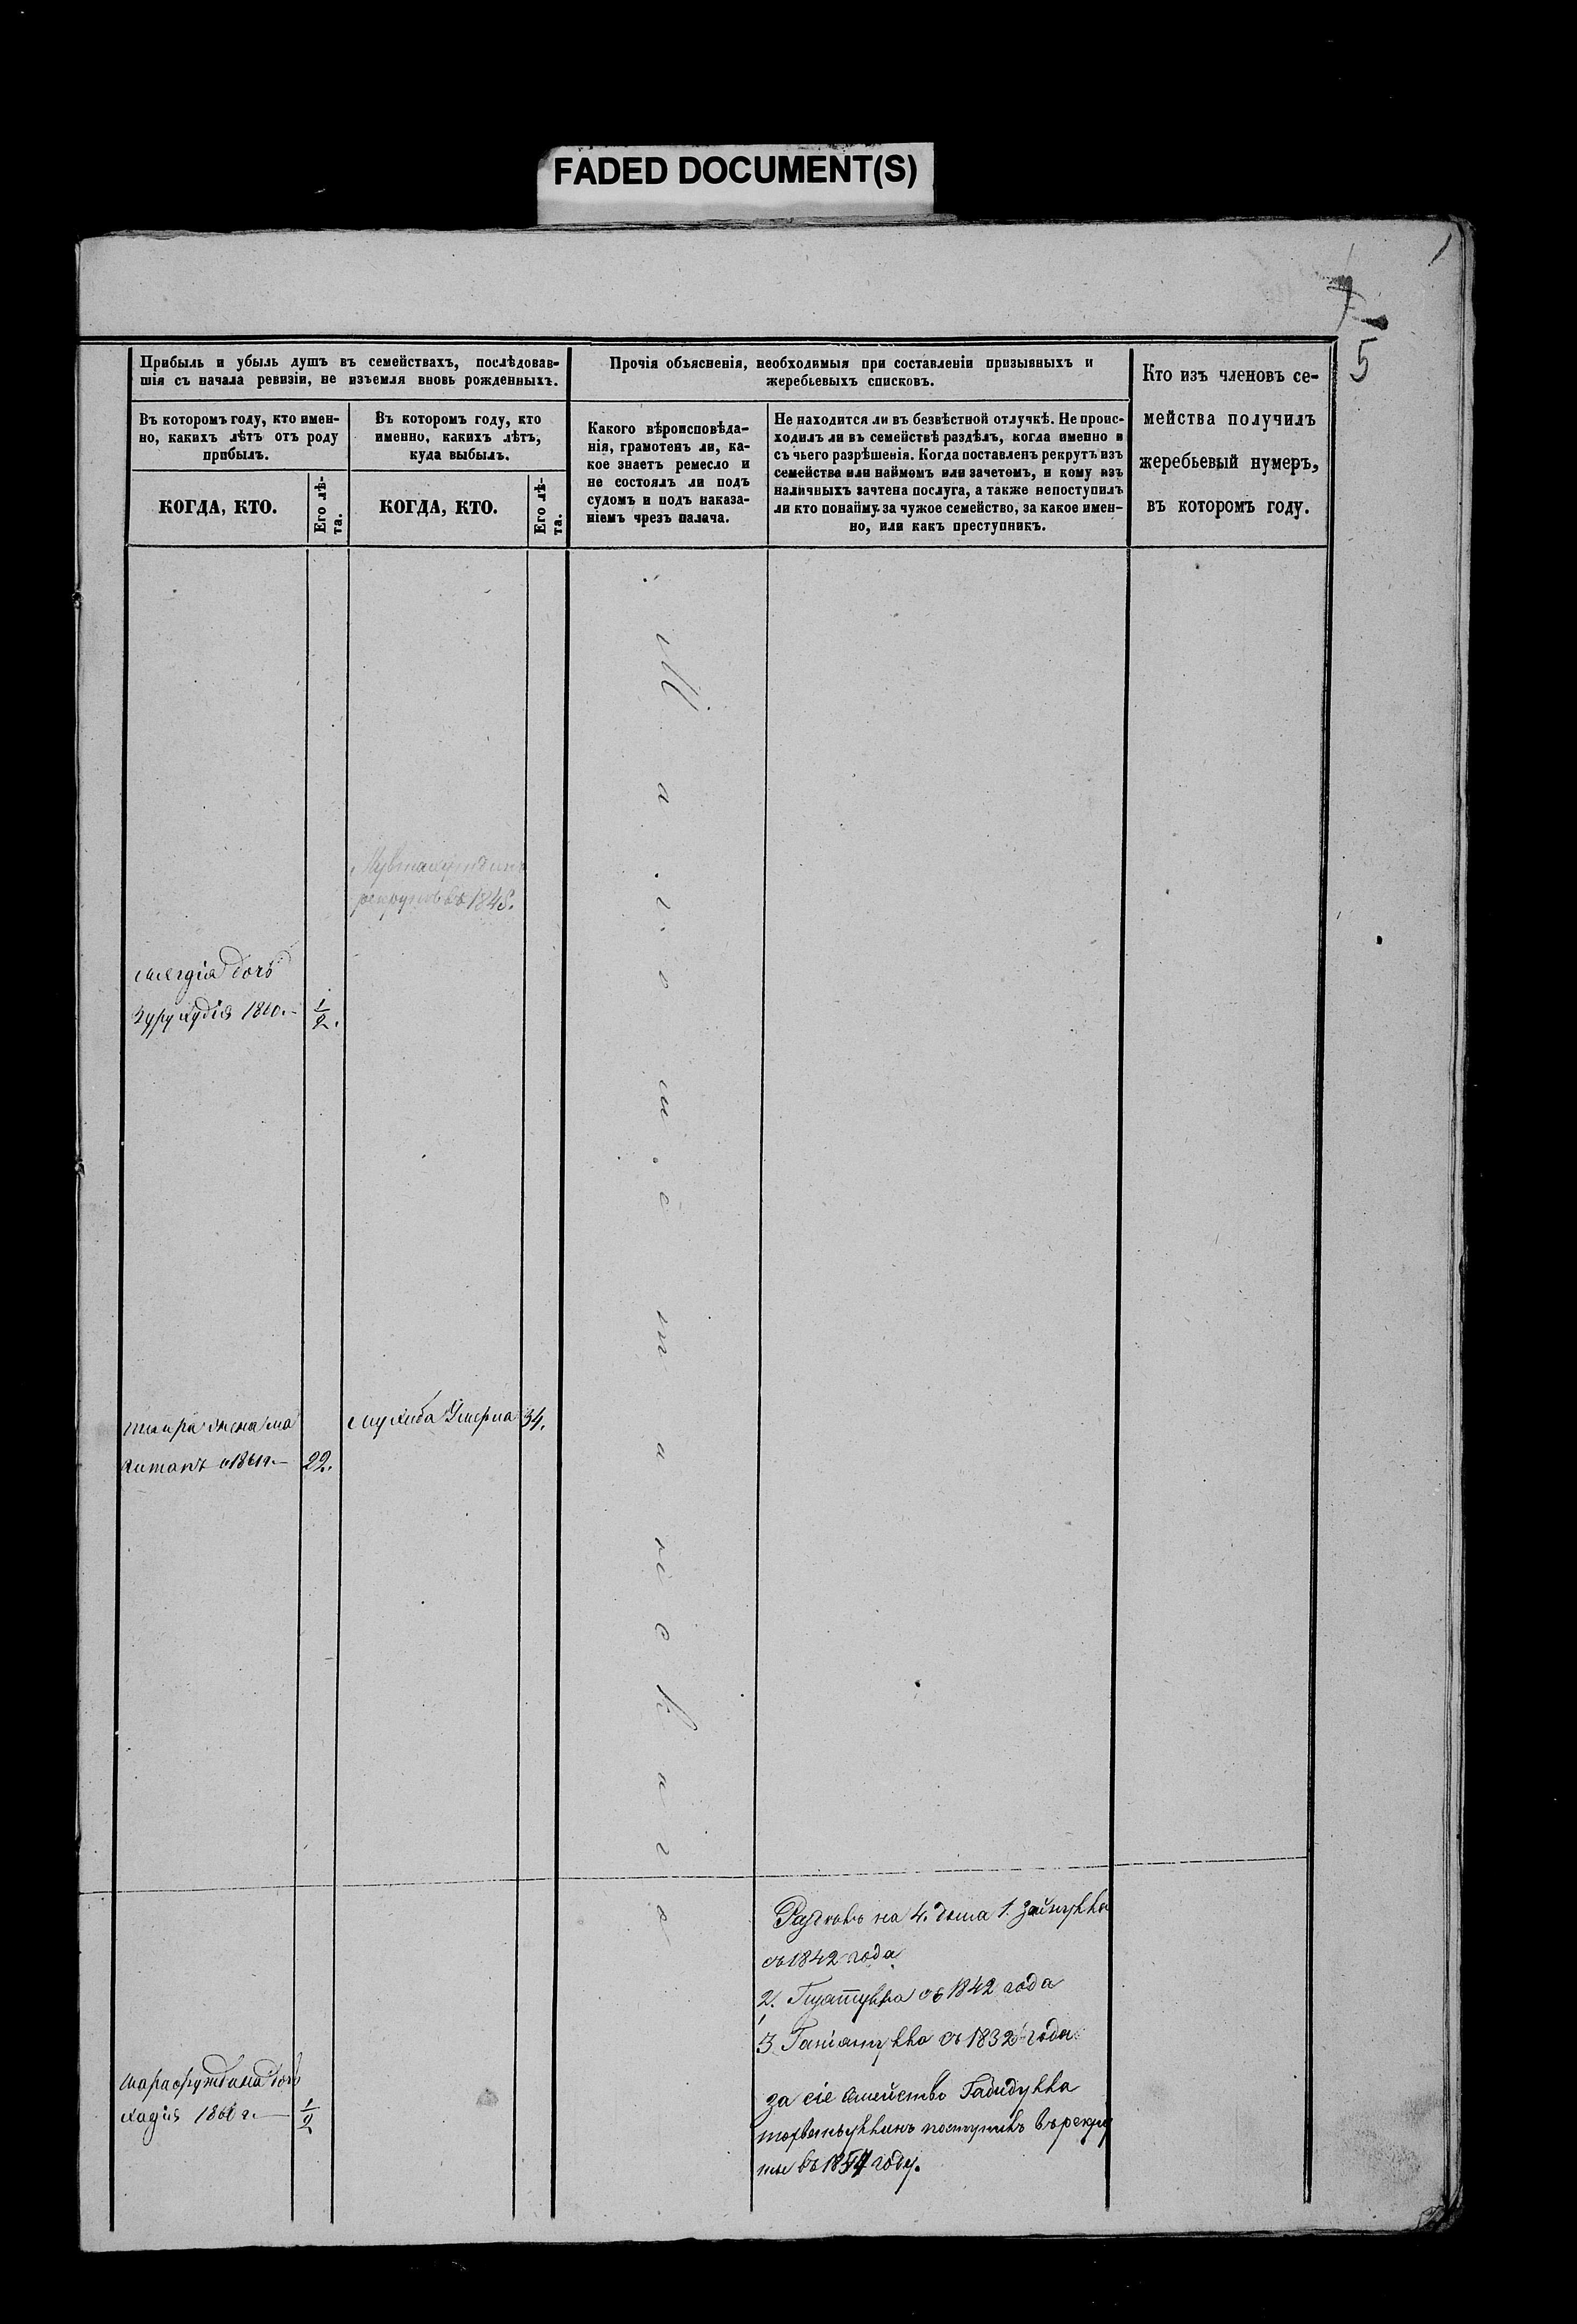 FADED DOCUMENT(S)
5
Прибыль и убыль душъ въ семействахъ, послѣдовав-
шія съ начала ревизіи, не изъемля вновь рожденныхъ.
Въ которомъ году, кто имен-
но, какихъ лѣтъ отъ роду
прибылъ.
КОГДА, КТО.
Его лѣ-
та.
Въ которомъ году, кто
именно, какихъ лѣтъ,
куда выбылъ.
КОГДА, КТО.
Его лѣ-
та.
Прочія объясненія, необходимыя при составленіи призывныхъ и
жеребьевыхъ списковъ.
Какого вѣроисповѣда-
нія, грамотенъ ли, ка-
кое знаетъ ремесло и
не состоялъ ли подъ
судомъ и подъ наказа-
ніемъ чрезъ палача.
Не находится ли въ безвѣстной отлучкѣ. Не проис-
ходилъ ли въ семействѣ раздѣлъ, когда именно и
съ чьего разрѣшенія. Когда поставленъ рекрутъ изъ
семейства или наймомъ или зачетомъ, и кому изъ
наличныхъ зачтена послуга, а также непоступилъ
ли кто понайму за чужое семейство, за какое имен-
но, или какъ преступникъ.
Кто изъ членовъ се-
мейства получилъ
жеребьевый нумеръ,
въ которомъ году.
Магометанскаго
въ 1845.
дочь
1860. 1/2.
жена
1861 г. 22.
Умерла 34.
на 4. дыма 1.
съ 1842 года
2. съ 1842 года
3. съ 1832 года
за сіе семейство
поступилъ въ рекру
ты въ 1854 году.
дочь
1860 г. 1/2